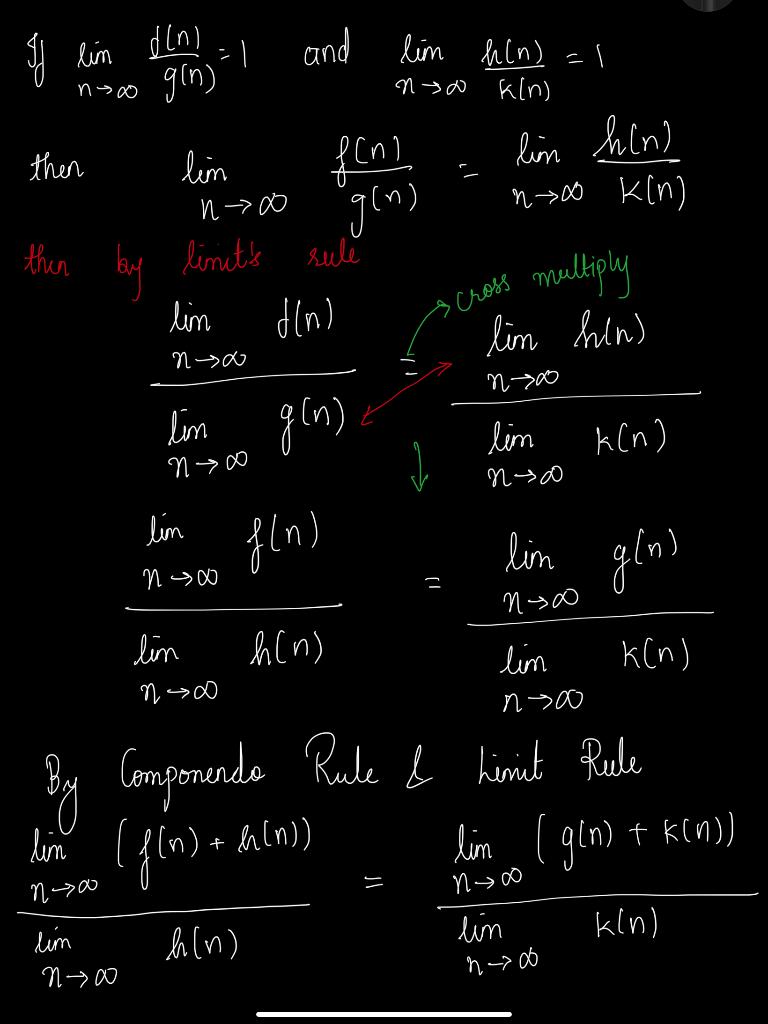 If lim n→∞ f(n)/g(n) = 1 and lim n→∞ h(n)/k(n) = 1
then lim n→∞ f(n)/g(n) = lim n→∞ h(n)/k(n)
then by limit's rule
cross multiply
lim n→∞ f(n) / lim n→∞ g(n) = lim n→∞ h(n) / lim n→∞ k(n)
lim n→∞ f(n) / lim n→∞ h(n) = lim n→∞ g(n) / lim n→∞ k(n)
By Componendo Rule & Limit Rule
lim n→∞ (f(n) + h(n)) / lim n→∞ h(n) = lim n→∞ (g(n) + k(n)) / lim n→∞ k(n)